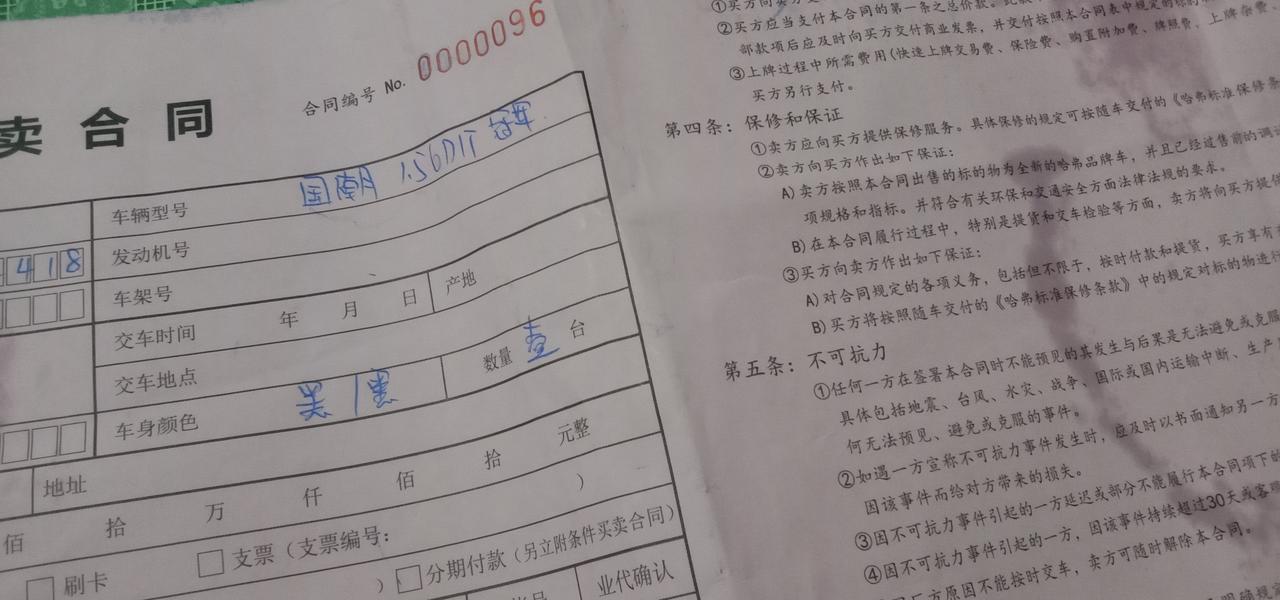 卖合同
合同编号 No. 0000096
车辆型号 国潮 1.5GDIT 冠军
418 发动机号
车架号
交车时间 年 月 日 产地
交车地点
车身颜色 黑/黑 数量 壹 台
地址
佰 拾 万 仟 佰 拾 元整
支票（支票编号: ）
刷卡 ） 分期付款（另立附条件买卖合同）
业代确认
②买方应当支付本合同的第一条之总价款。
部款项后应及时向买方交付商业发票，并交付按照本合同表中规定的标的
③上牌过程中所需费用(快速上牌交易费、保险费、购置附加费、牌照费、上牌杂费、
买方另行支付。
第四条：保修和保证
①卖方应向买方提供保修服务。具体保修的规定可按随车交付的《哈弗标准保修条
②卖方向买方作出如下保证：
A) 卖方按照本合同出售的标的物为全新的哈弗品牌车，并且已经过售前的调
项规格和指标。并符合有关环保和交通安全方面法律法规的要求。
B) 在本合同履行过程中，特别是提货和交车检验等方面，卖方将向买方提供
③买方向卖方作出如下保证：
A) 对合同规定的各项义务，包括但不限于，按时付款和提货，买方享有
B) 买方将按照随车交付的《哈弗标准保修条款》中的规定对标的物进行
第五条：不可抗力
①任何一方在签署本合同时不能预见的其发生与后果是无法避免或克服
具体包括地震、台风、水灾、战争、国际或国内运输中断、生产
何无法预见、避免或克服的事件。
②如遇一方宣称不可抗力事件发生时，应及时以书面通知另一方
因该事件而给对方带来的损失。
③因不可抗力事件引起的一方延迟或部分不能履行本合同项下的
④因不可抗力事件引起的一方，因该事件持续超过30天或客
原因不能按时交车，卖方可随时解除本合同。